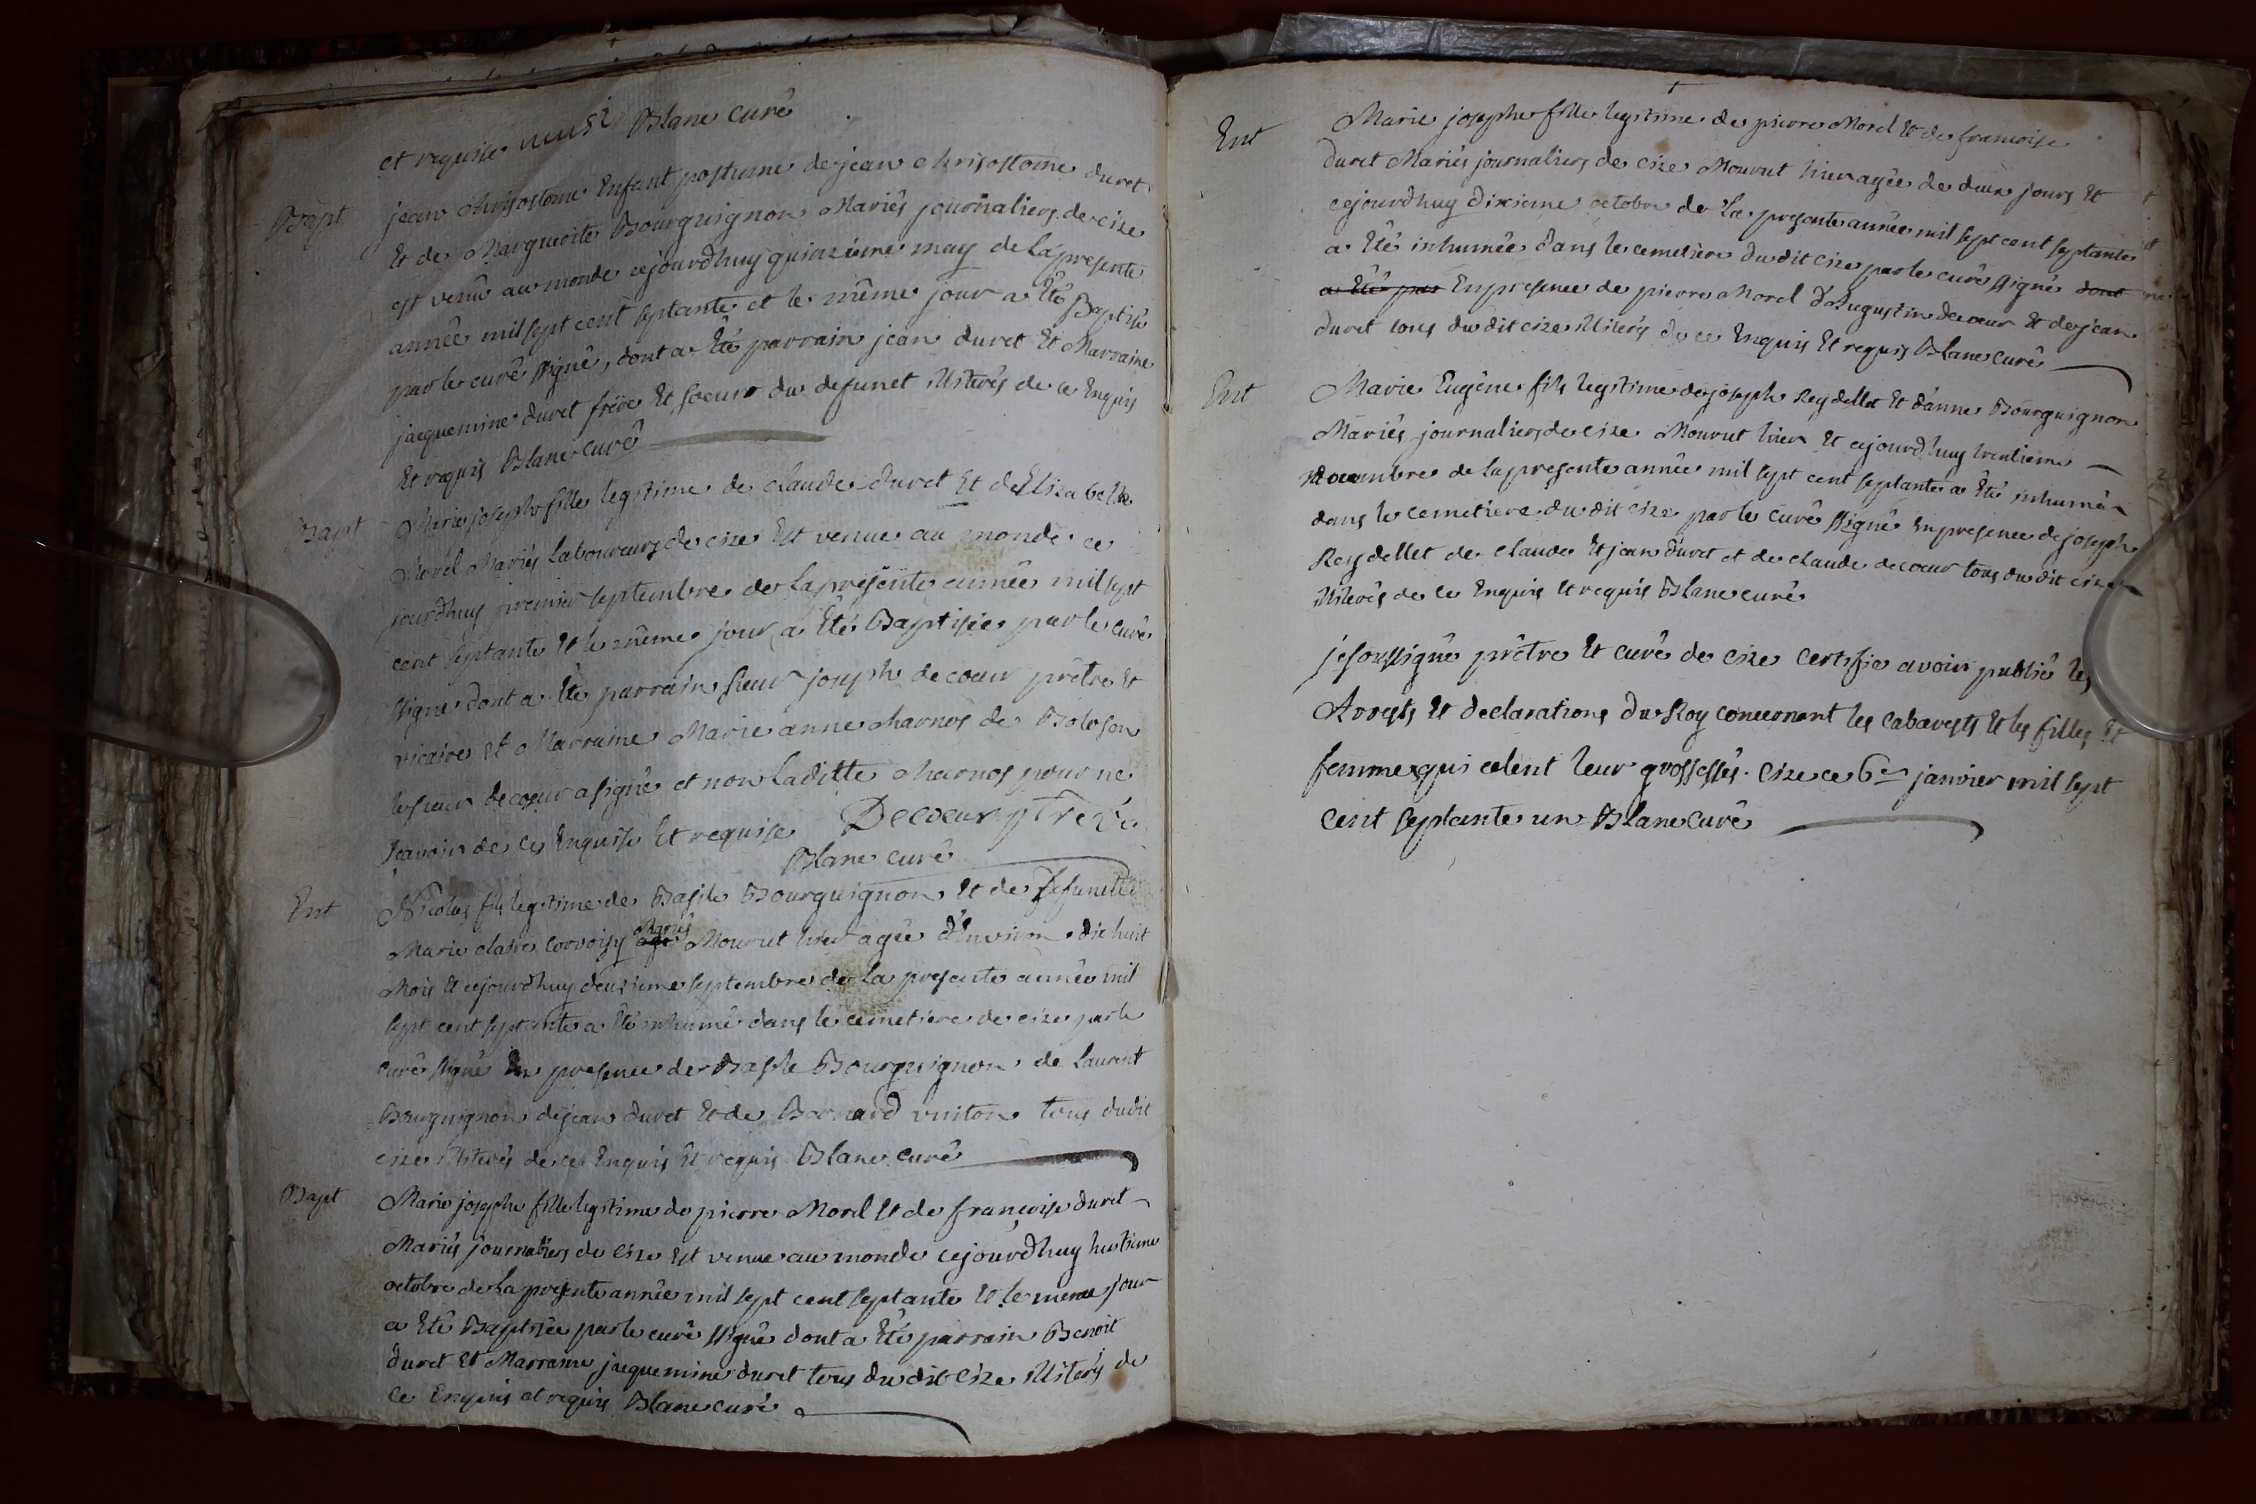 et requise Blanc curé
Bapt jean chrisostome Enfant postume de jean chrisostome duret
Et de Marguerite Bourguignon Mariés journaliers de cize
est venû au monde cejourd'huy quinzieme may de La presente
année mil sept cent septante et le même jour a Eté Baptisé
par le curé ssigné, dont a Eté parrain jean duret Et Marraine
jacquemine duret frère Et soeur du defunct illiterés de ce Enquis
Et requis Blanc curé
Bapt Marie josephe fille legitime de claude duret Et de Elizabeth
Morel Mariés Laboureurs de cize Est venue au monde ce
jourd'huy premier septembre de La presente année mil sept
cent septante Et le même jour a Eté Baptisée par le curé
ssigné dont a Eté parrain sieur joseph decoeur prêtre Et
vicaire et Marraine Marie anne charnos de Boloson
le sieur decoeur a signé et non Laditte charnos pour ne
scavoir de ce Enquise Et requise Decoeur ptre
Blanc curé
Ent Nicolas fils legitime de Basile Bourguignon Et de defuncte
Marie claire Mariés Mourut hier agée d'Environ dix huit
Mois Et cejourd'huy deuxieme septembre de La presente année mil
sept cent septante a Eté inhumé dans le cemetiere de cize par le
curé ssigné En presence de Basile Bourguignon de Laurent
Bourguignon de jean duret Et de Bernard vuiton tous dudit
cize illiterés de ce Enquis Et requis Blanc curé
Bapt Marie josephe fille legitime de pierre Morel Et de françoise duret
Mariés journaliers de cize Est venue au monde cejourd'huy huitieme
octobre de La presente année mil sept cent septante Et le meme jour
a Eté Baptisée par le curé ssigné dont a Eté parrain Benoit
duret Et Marraine jacquemine duret tous du dit Cize illiterés de
ce Enquis et requis Blanc curé
Ent Marie josephe fille legitime de pierre Morel Et de francoise
duret Mariés journaliers de cize Mourut hier agée de deux jours Et
cejourd'huy dixieme octobre de La presente année mil sept cent septante
a Eté inhumée dans le cemetiere du dit Cize par le curé ssigné dont
a Eté par En presence de pierre Morel d'Augustin decoeur Et de jean
duret tous du dit cize illiterés de ce Enquis Et requis Blanc curé
Ent Marie Eugène fils legitime de joseph Reydellet Et d'anne Bourguignon
Mariés journaliers de cize Mourut hier Et cejourd'huy trentieme
novembre de La presente année mil sept cent septante a Eté inhumé
dans le cemetiere du dit cize par le curé ssigné En presence de joseph
Reydellet de claude Et jean duret et de claude decoeur tous du dit cize
illiterés de ce Enquis Et requis Blanc curé
je soussigné prêtre Et curé de cize certifie avoir publié les
Arrests Et declarations du Roy concernant les cabarests Et les filles Et
femmes qui celent leur grossesses. Cize ce 6e janvier mil sept
cent septante un Blanc curé